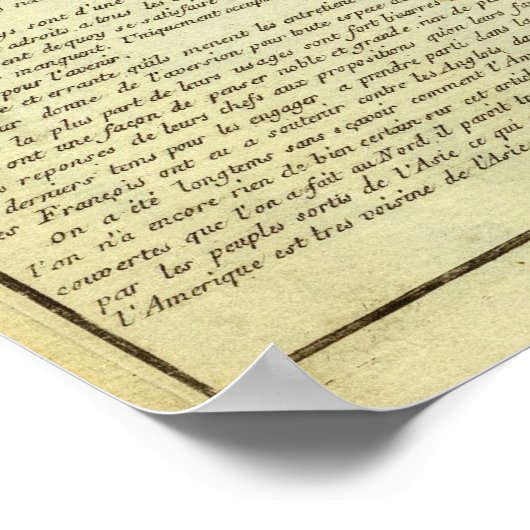 sont d'une
adroits a tous les
ent dequoy se satisfaire
manquant. Uniquement occupe
pour l'avenir.
e et errante qu'ils menent les entretien
donne de l'aversion pour toute espece d
la plus part de leurs usages sont fort bizarres
ont une façon de penser noble et grande, rien de p
reponses de leurs chefs aux propositions qu'on leurs f
derniers tems pour les engager a prendre parti dans l
es François ont eu a soutenir contre les Anglois d
On a été longtems sans sçavoir comment l'Am
l'on n'a encore rien de bien certain sur cet arti
couvertes que l'on a fait au Nord il paroit
par les peuples sortis de l'Asie ce qui
l'Amerique est tres voisine de l'Asie